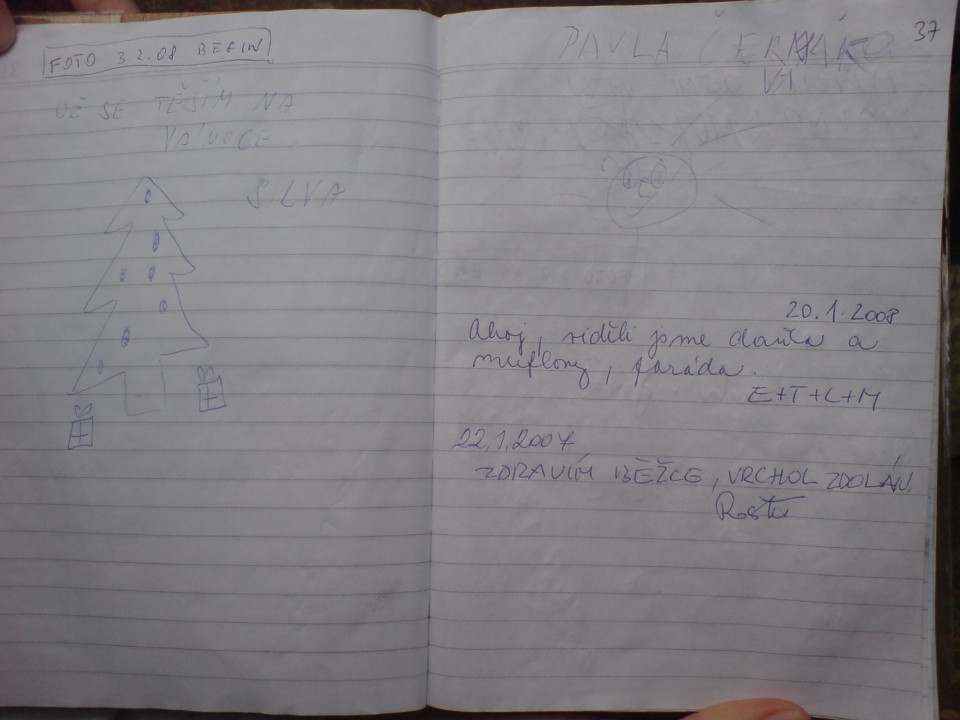 FOTO 3 2.08 BEGIN
UŽ SE TĚŠÍM NA
VÁNOCE
SILVA
37
PAVLA
20.1.2008
Ahoj, viděli jsme daňka a
muflony, paráda.
E+T+L+M
22.1.2007
ZDRAVÍM BĚŽCE, VRCHOL ZDOLÁN.